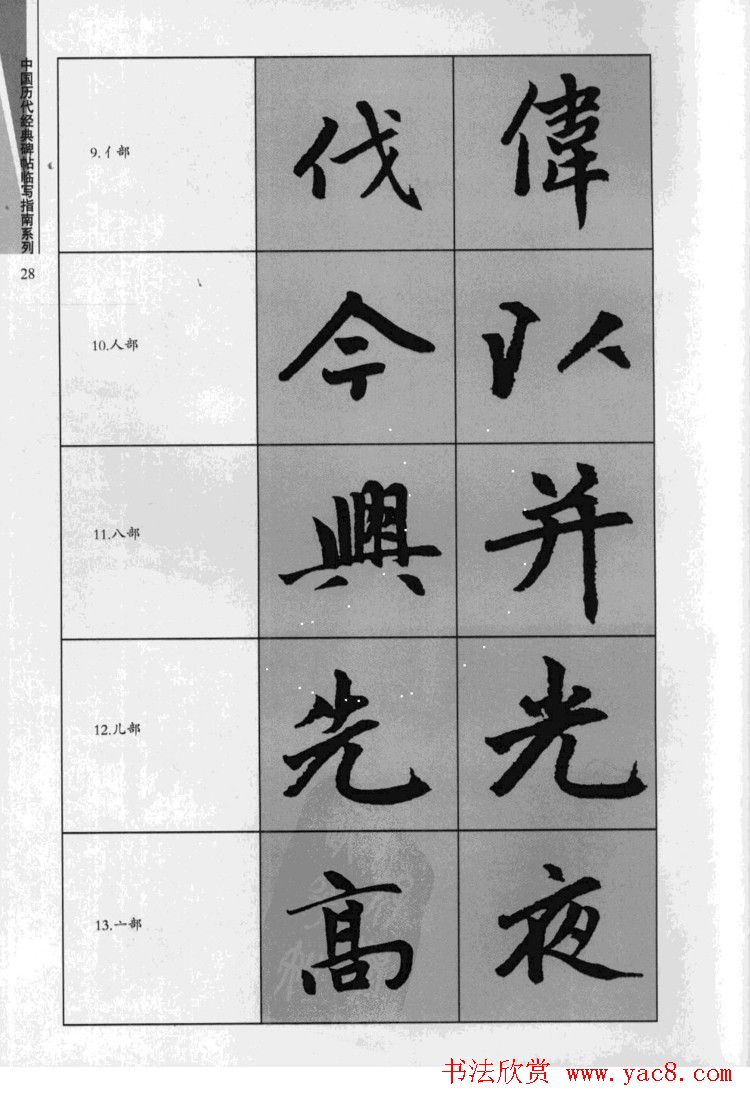 中国历代经典碑帖临写指南系列
28
9.亻部
伐 偉
10.人部
今 以
11.八部
興 并
12.儿部
先 光
13.亠部
高 夜
书法欣赏 www.yac8.com